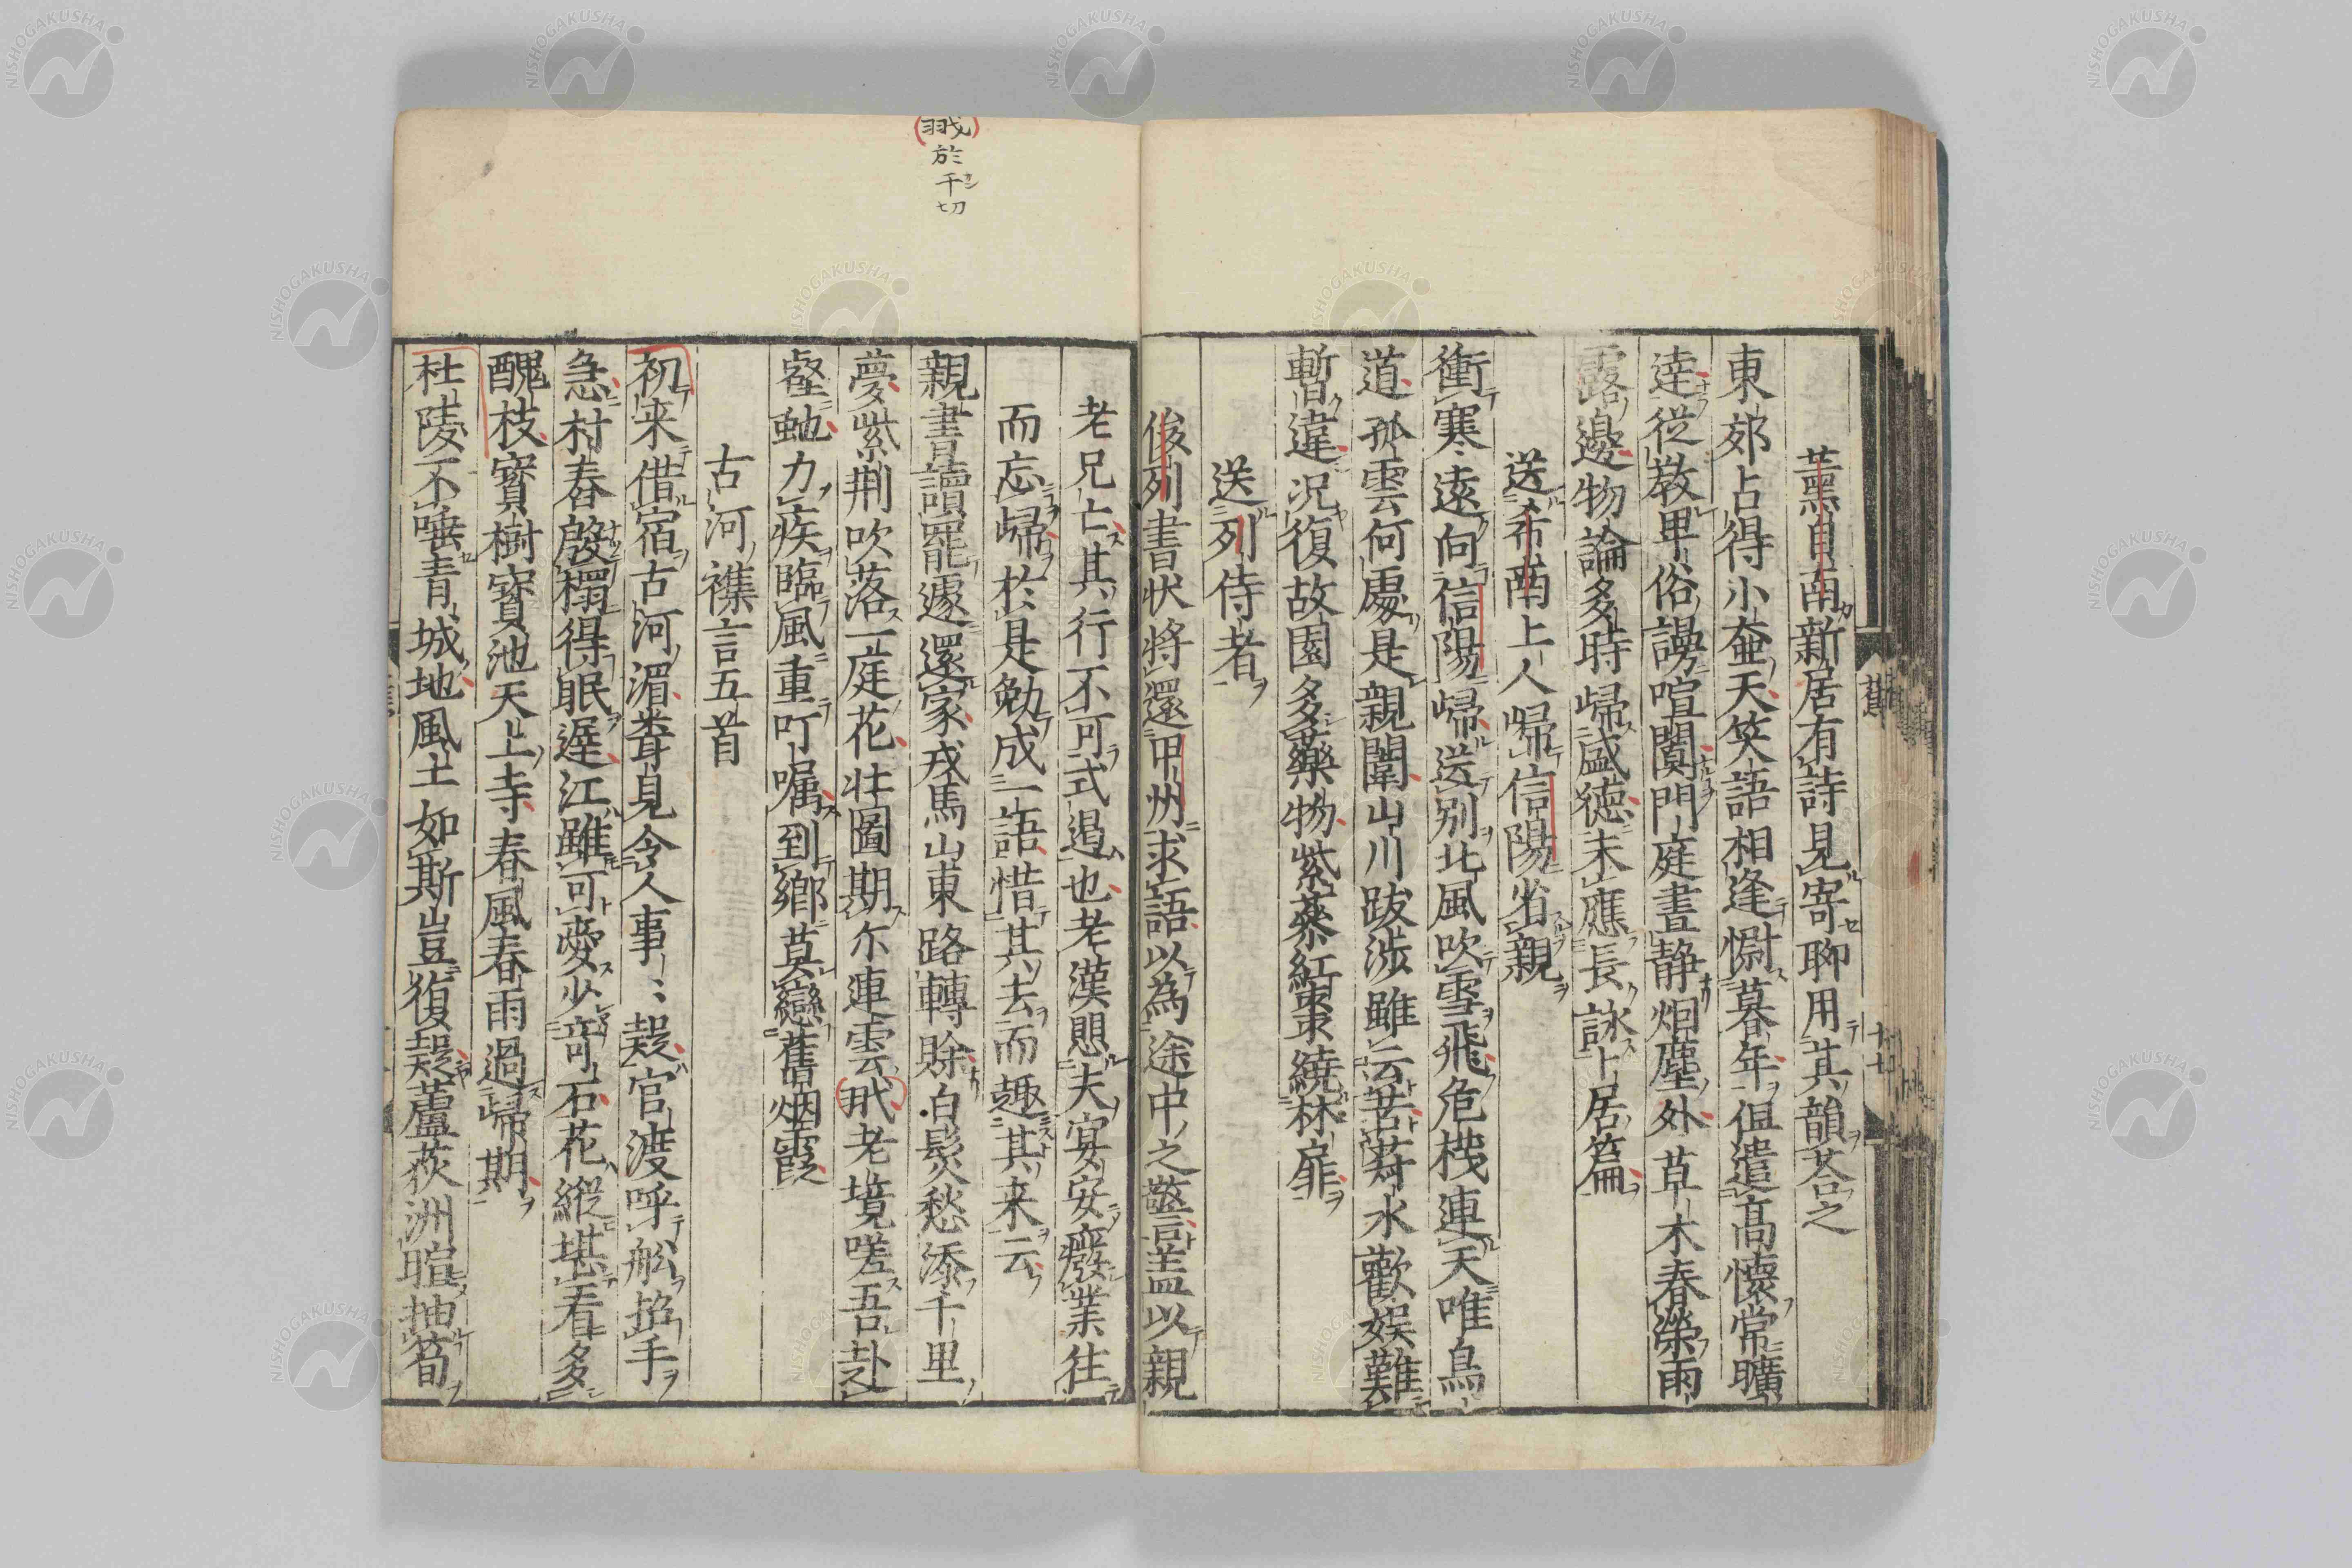 薫自南新居有詩見寄聊用其韻荅之
東郊占得小奩天笑語相逢慰暮年但遣高懷常曠
達従教卑俗謾喧闐門庭晝静烟塵外草木春榮雨
露邊物論多時帰盛徳末應長詠卜居篇
送希南上人帰信陽省親
衝寒遠向信陽帰送別北風吹雪飛危棧連天唯鳥
道孤雲何處是親闈山川跋渉雖云苦菽水歡娯難
暫違况復故園多藥物紫蔘紅棗繞林扉
送列侍者
俊列書状将還甲州求語以為途中之警盖以親
老兄亡其行不可式遏也老漢愳夫宴安癈業往
而忘帰於是勉成一語惜其去而趣其来云
親書讀罷遽還家戎馬山東路轉賖白髪愁添千里
夢紫荆吹落一庭花壮圖期尓連雲翮老境嗟吾赴
壑虵力疾臨風重叮嘱到鄉莫戀舊烟霞
古河襍言五首
初来借宿古河湄聋見令人事〻疑官渡呼舩招手
急村春殷榻得眠遅江雖可愛少竒石花縱堪看多
醜枝寳樹寳池天上寺春風春雨過帰期
杜陵不唾青城地風土如斯豈復疑蘆荻洲暄抽筍
蕉
十七
翮於干切
NISHOGAKUSHA